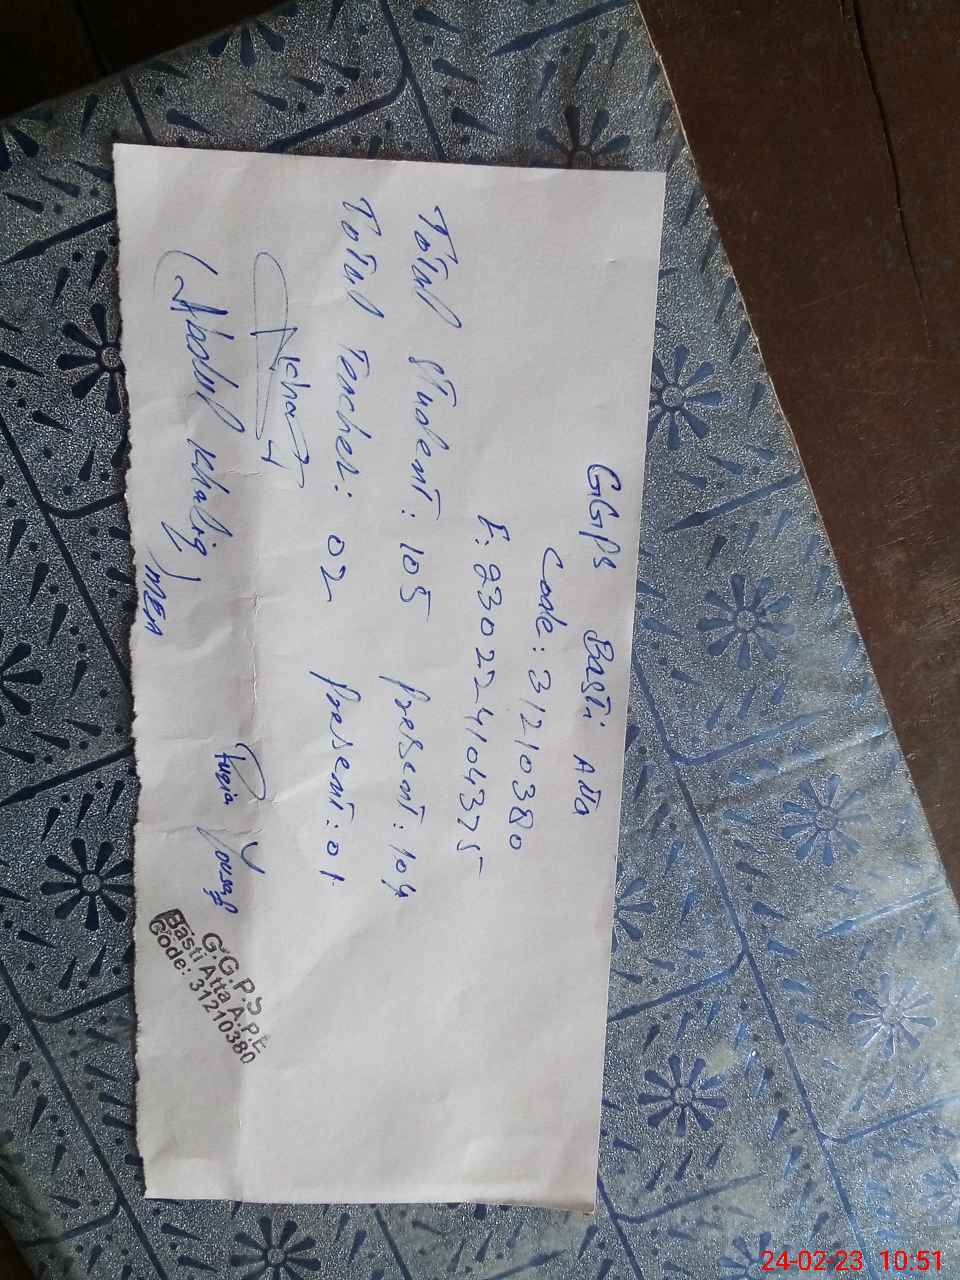 GGPS Basti Atta
Code: 31210380
F: 230224104375
Total Student: 105 Present: 104
Total Teacher: 02 Present: 01
(Abdul Khaliq) MEA
Yousaf
G.G.P.S
Basti Atta A.P.E
Code: 31210380
24-02-23 10:51